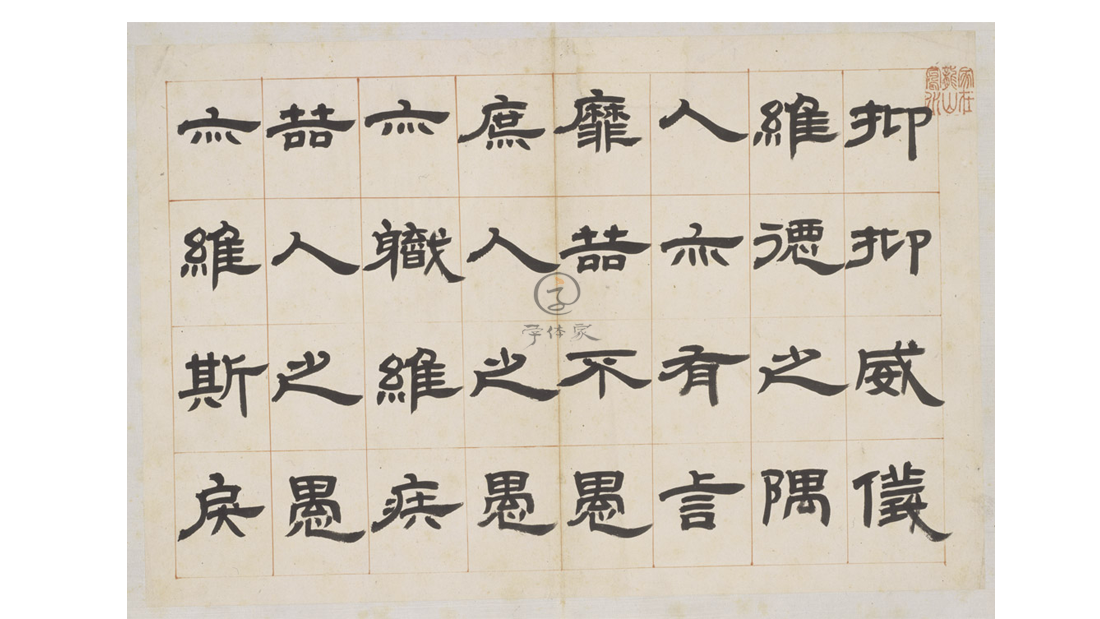 抑抑威儀
維德之隅
人亦有言
靡喆不愚
庶人之愚
亦職維疾
喆人之愚
亦維斯戾
字体家